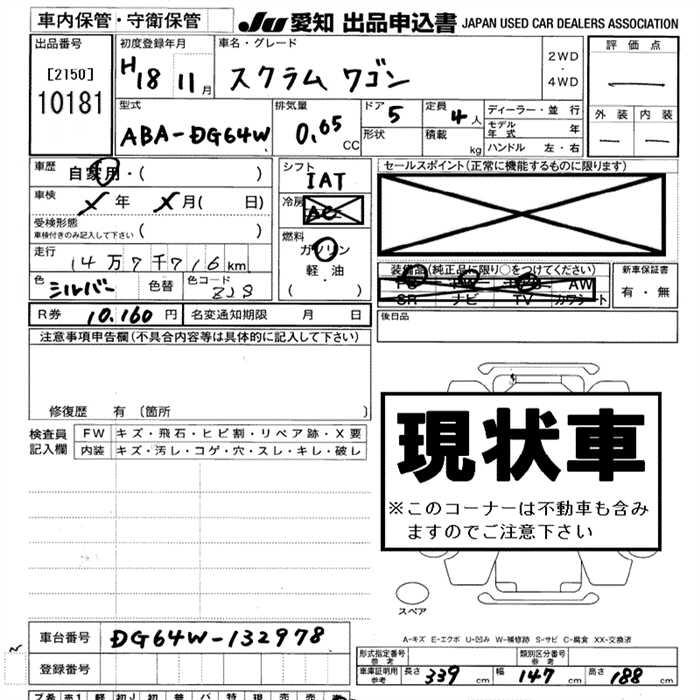 車内保管・守衛保管
JU 愛知 出品申込書 JAPAN USED CAR DEALERS ASSOCIATION
出品番号
[2150]
10181
初度登録年月
H18 11月
車名・グレード
スクラム ワゴン
2WD
・
4WD
評価点
外装 内装
型式
ABA-DG64W
排気量
0.65 CC
ドア 5
形状
定員 4人
積載 kg
ディーラー・並行
モデル年式 年
ハンドル 左・右
車歴
自家用・( )
車検 年 月( 日)
受検形態
車検付きのみ記入して下さい ( )
走行
14万7千716km
色
シルバー
色替
色コード
ZJS
R券 10,160円
名変通知期限 月 日
シフト
IAT
冷房
AC
燃料
ガソリン
軽油
( ・ )
セールスポイント(正常に機能するものに限ります)
装備品(純正品に限り○をつけてください)
AW
SR ナビ TV カワシート
新車保証書
有・無
後日品
注意事項申告欄(不具合内容等は具体的に記入して下さい)
修復歴 有(箇所 )
検査員記入欄
FW キズ・飛石・ヒビ割・リペア跡・X要
内装 キズ・汚レ・コゲ・穴・スレ・キレ・破レ
現状車
※このコーナーは不動車も含み
ますのでご注意下さい
スペア
A-キズ E-エクボ U-凹み W-補修跡 S-サビ C-腐食 XX-交換済
車台番号 DG64W-132978
登録番号
形式指定番号
参考
類別区分番号
参考
車庫証明用
参考
長さ 339 cm 幅 147 cm 高さ 188 cm